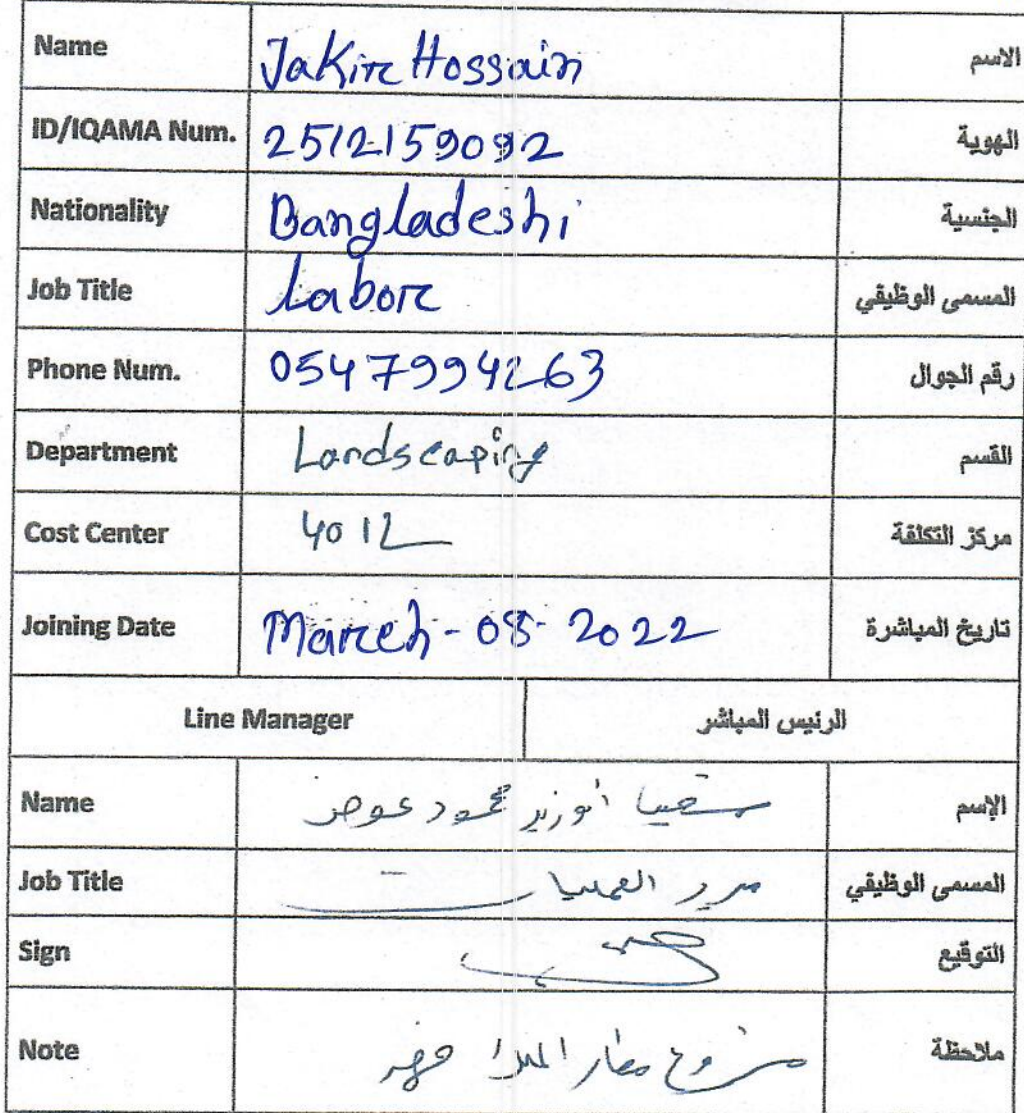 Name Jakir Hossain الاسم
ID/IQAMA Num. 2512159092 الهوية
Nationality Bangladeshi الجنسية
Job Title Labor المسمى الوظيفي
Phone Num. 0547994263 رقم الجوال
Department Landscaping القسم
Cost Center 4012 مركز التكلفة
Joining Date March-08-2022 تاريخ المباشرة
Line Manager الرئيس المباشر
Name ابوزيد محمود عوض الإسم
Job Title مدير العمليات المسمى الوظيفي
Sign التوقيع
Note مشروع مطار الملك فهد ملاحظة